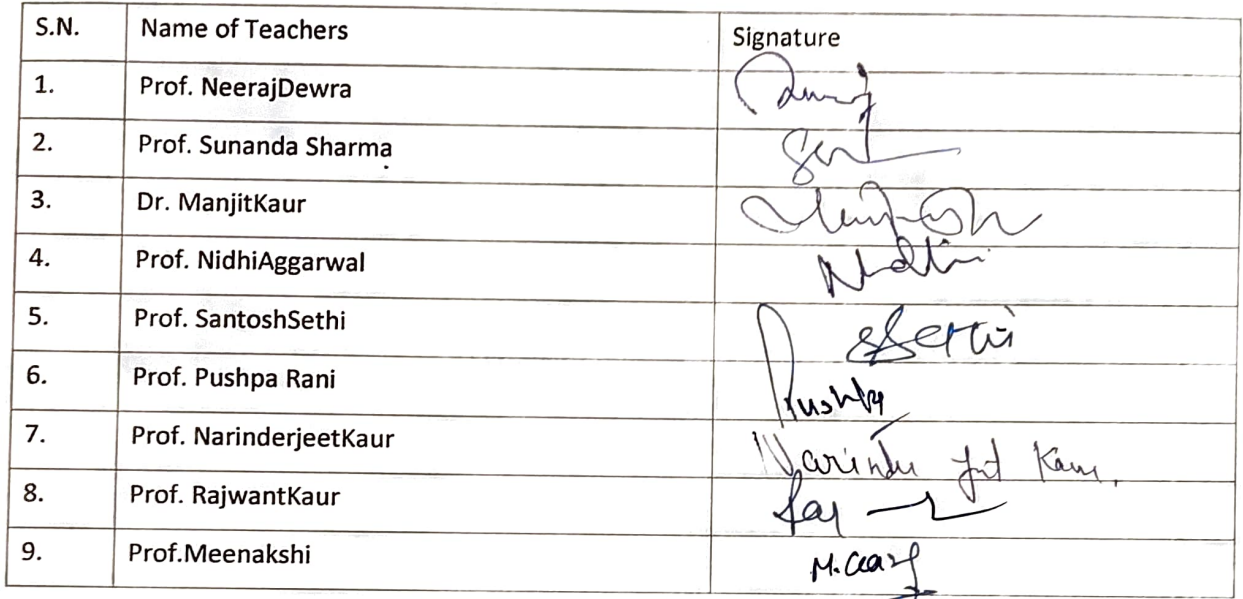 S.N. Name of Teachers Signature
1. Prof. NeerajDewra
2. Prof. Sunanda Sharma
3. Dr. ManjitKaur
4. Prof. NidhiAggarwal Nidhi
5. Prof. SantoshSethi SSethi
6. Prof. Pushpa Rani Pushpa
7. Prof. NarinderjeetKaur Narinder jeet Kaur.
8. Prof. RajwantKaur Raj
9. Prof.Meenakshi